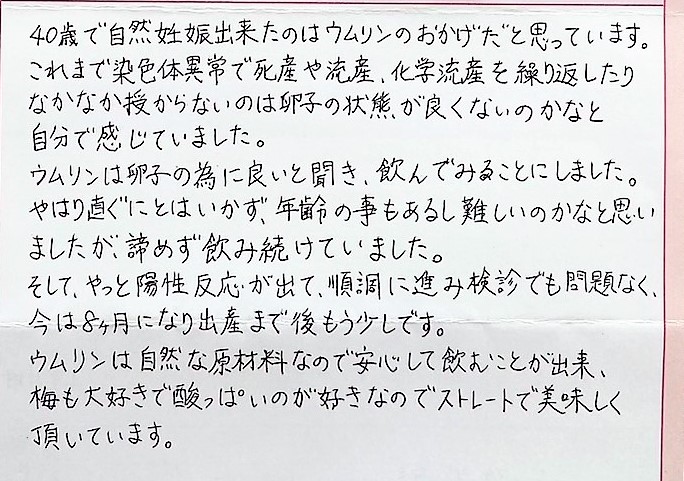 40歳で自然妊娠出来たのはウムリンのおかげだと思っています。
これまで染色体異常で死産や流産、化学流産を繰り返したり
なかなか授からないのは卵子の状態が良くないのかなと
自分で感じていました。
ウムリンは卵子の為に良いと聞き、飲んでみることにしました。
やはり直ぐにとはいかず、年齢の事もあるし難しいのかなと思い
ましたが、諦めず飲み続けていました。
そして、やっと陽性反応が出て、順調に進み検診でも問題なく、
今は8ヶ月になり出産まで後もう少しです。
ウムリンは自然な原材料なので安心して飲むことが出来、
梅も大好きで酸っぱいのが好きなのでストレートで美味しく
頂いています。